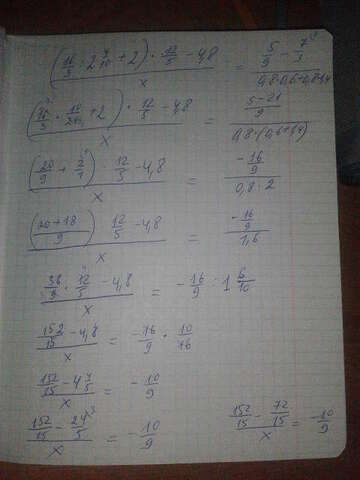 (16/3 : 2 4/10 + 2) · 12/5 - 4,8 / x = 5/9 - 7/3 / 0,8·0,6+0,8·1,4
(16/3 · 10/24 + 2) · 12/5 - 4,8 / x = 5-21/9 / 0,8·(0,6+1,4)
(20/9 + 2/1) · 12/5 - 4,8 / x = -16/9 / 0,8·2
(20+18/9) 12/5 - 4,8 / x = -16/9 / 1,6
38/9 · 12/5 - 4,8 / x = -16/9 : 1 6/10
152/15 - 4,8 / x = -16/9 · 10/16
152/15 - 4 4/5 / x = -10/9
152/15 - 24/5 / x = -10/9
152/15 - 72/15 / x = -10/9